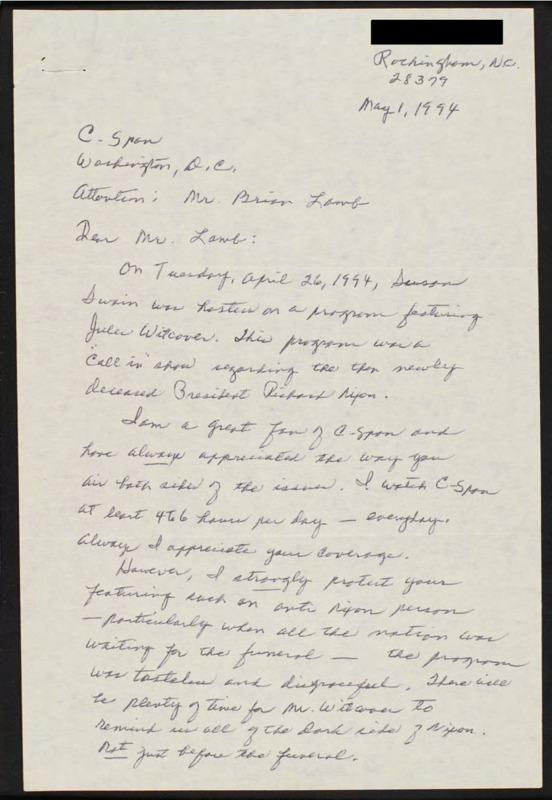 Rockingham, N.C.
28379
May 1, 1994
C-Span
Washington, D.C.
Attention: Mr. Brian Lamb
Dear Mr. Lamb:
On Tuesday, April 26, 1994, Susan
Swain was hosted on a program featuring
Jules Witcover. This program was a
"Call in" show regarding the then newly
deceased President Richard Nixon.
I am a great fan of C-Span and
have always appreciated the way you
air both sides of the issues. I watch C-Span
at least 4to6 hours per day — everyday.
Always I appreciate your coverage.
However, I strongly protest your
featuring such an anti Nixon person
— particularly when all the nation was
waiting for the funeral — the program
was tasteless and disgraceful. There will
be plenty of time for Mr. Witcover to
remind us all of the dark side of Nixon.
Not just before the funeral.